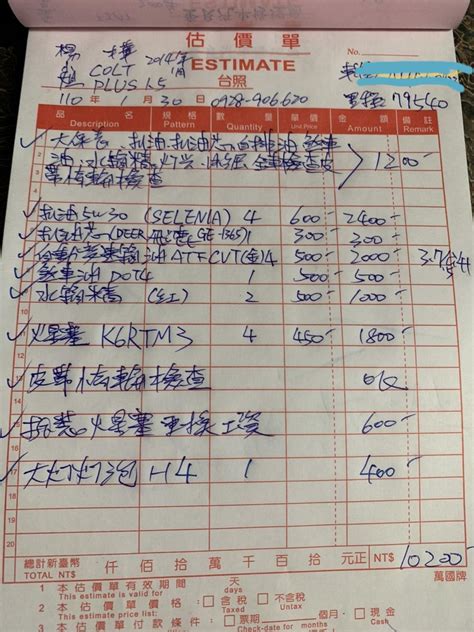 估價單
No.
楊 樓 2014年
COLT 1月 ESTIMATE
PLUS 1.5 台照
110年 1月 30日 0928-906620 里程 79540
品名 規格 數量 單價 金額 備註
Description Pattern Quantity Unit Price Amount Remark
✓大保養 機油.機油芯.自排油.煞車
油.水箱精.燈光.胎壓.全車檢查皮 1200-
帶惰輪檢查
✓機油5W30 (SELENIA) 4 600- 2400-
✓機油芯(DEER 飛鹿 GE-1365) 1 300- 300-
✓自動變速箱油ATF CVT(金) 4 500- 2000- 3.74
✓煞車油 DOT4 1 500- 500-
✓水箱精 (紅) 2 500- 1000-
✓火星塞 K6RTM3 4 450- 1800-
✓皮帶惰輪檢查 OK
✓拆裝火星塞更換工資 600-
✓大燈燈泡 H4 1 400-
總計新臺幣 仟 佰 拾 萬 千 百 拾 元正 NT$ 10200-
TOTAL NT$ 萬國牌
1 本估價單有效期間 天
This estimate is valid for days
2 本估價單價格：□含稅 □不含稅
This estimate price list: Taxed Untax
3 本估價單付款條件：□票期 個月．□現金
This estimate Check-date for months Cash